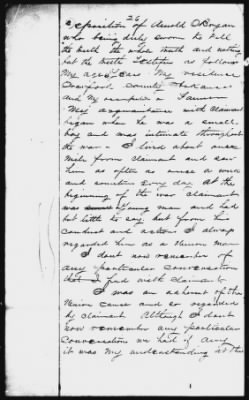 26
Deposition of Arnold O'Bryan
who being duly sworn to tell
the truth the whole truth and nothing
but the truth testifies as follows
My age is years My residence
Crawford County Arkansas
and my occupation a Farmer
My acquaintance with claimant
began when he was a small
boy and was intimate throughout
the war - I lived about one
mile from claimant and saw
him as often as once a week
and sometimes every day At the
beginning of the war claimant
was young man and had
but little to say but from his
conduct and actions I always
regarded him as a Union man
I dont now remember of
any particular conversation
that I had with claimant.
I was an adherent of the
Union cause and so regarded
by claimant Although I dont
now remember any particular
Conversation we had if any
it was my understanding at the